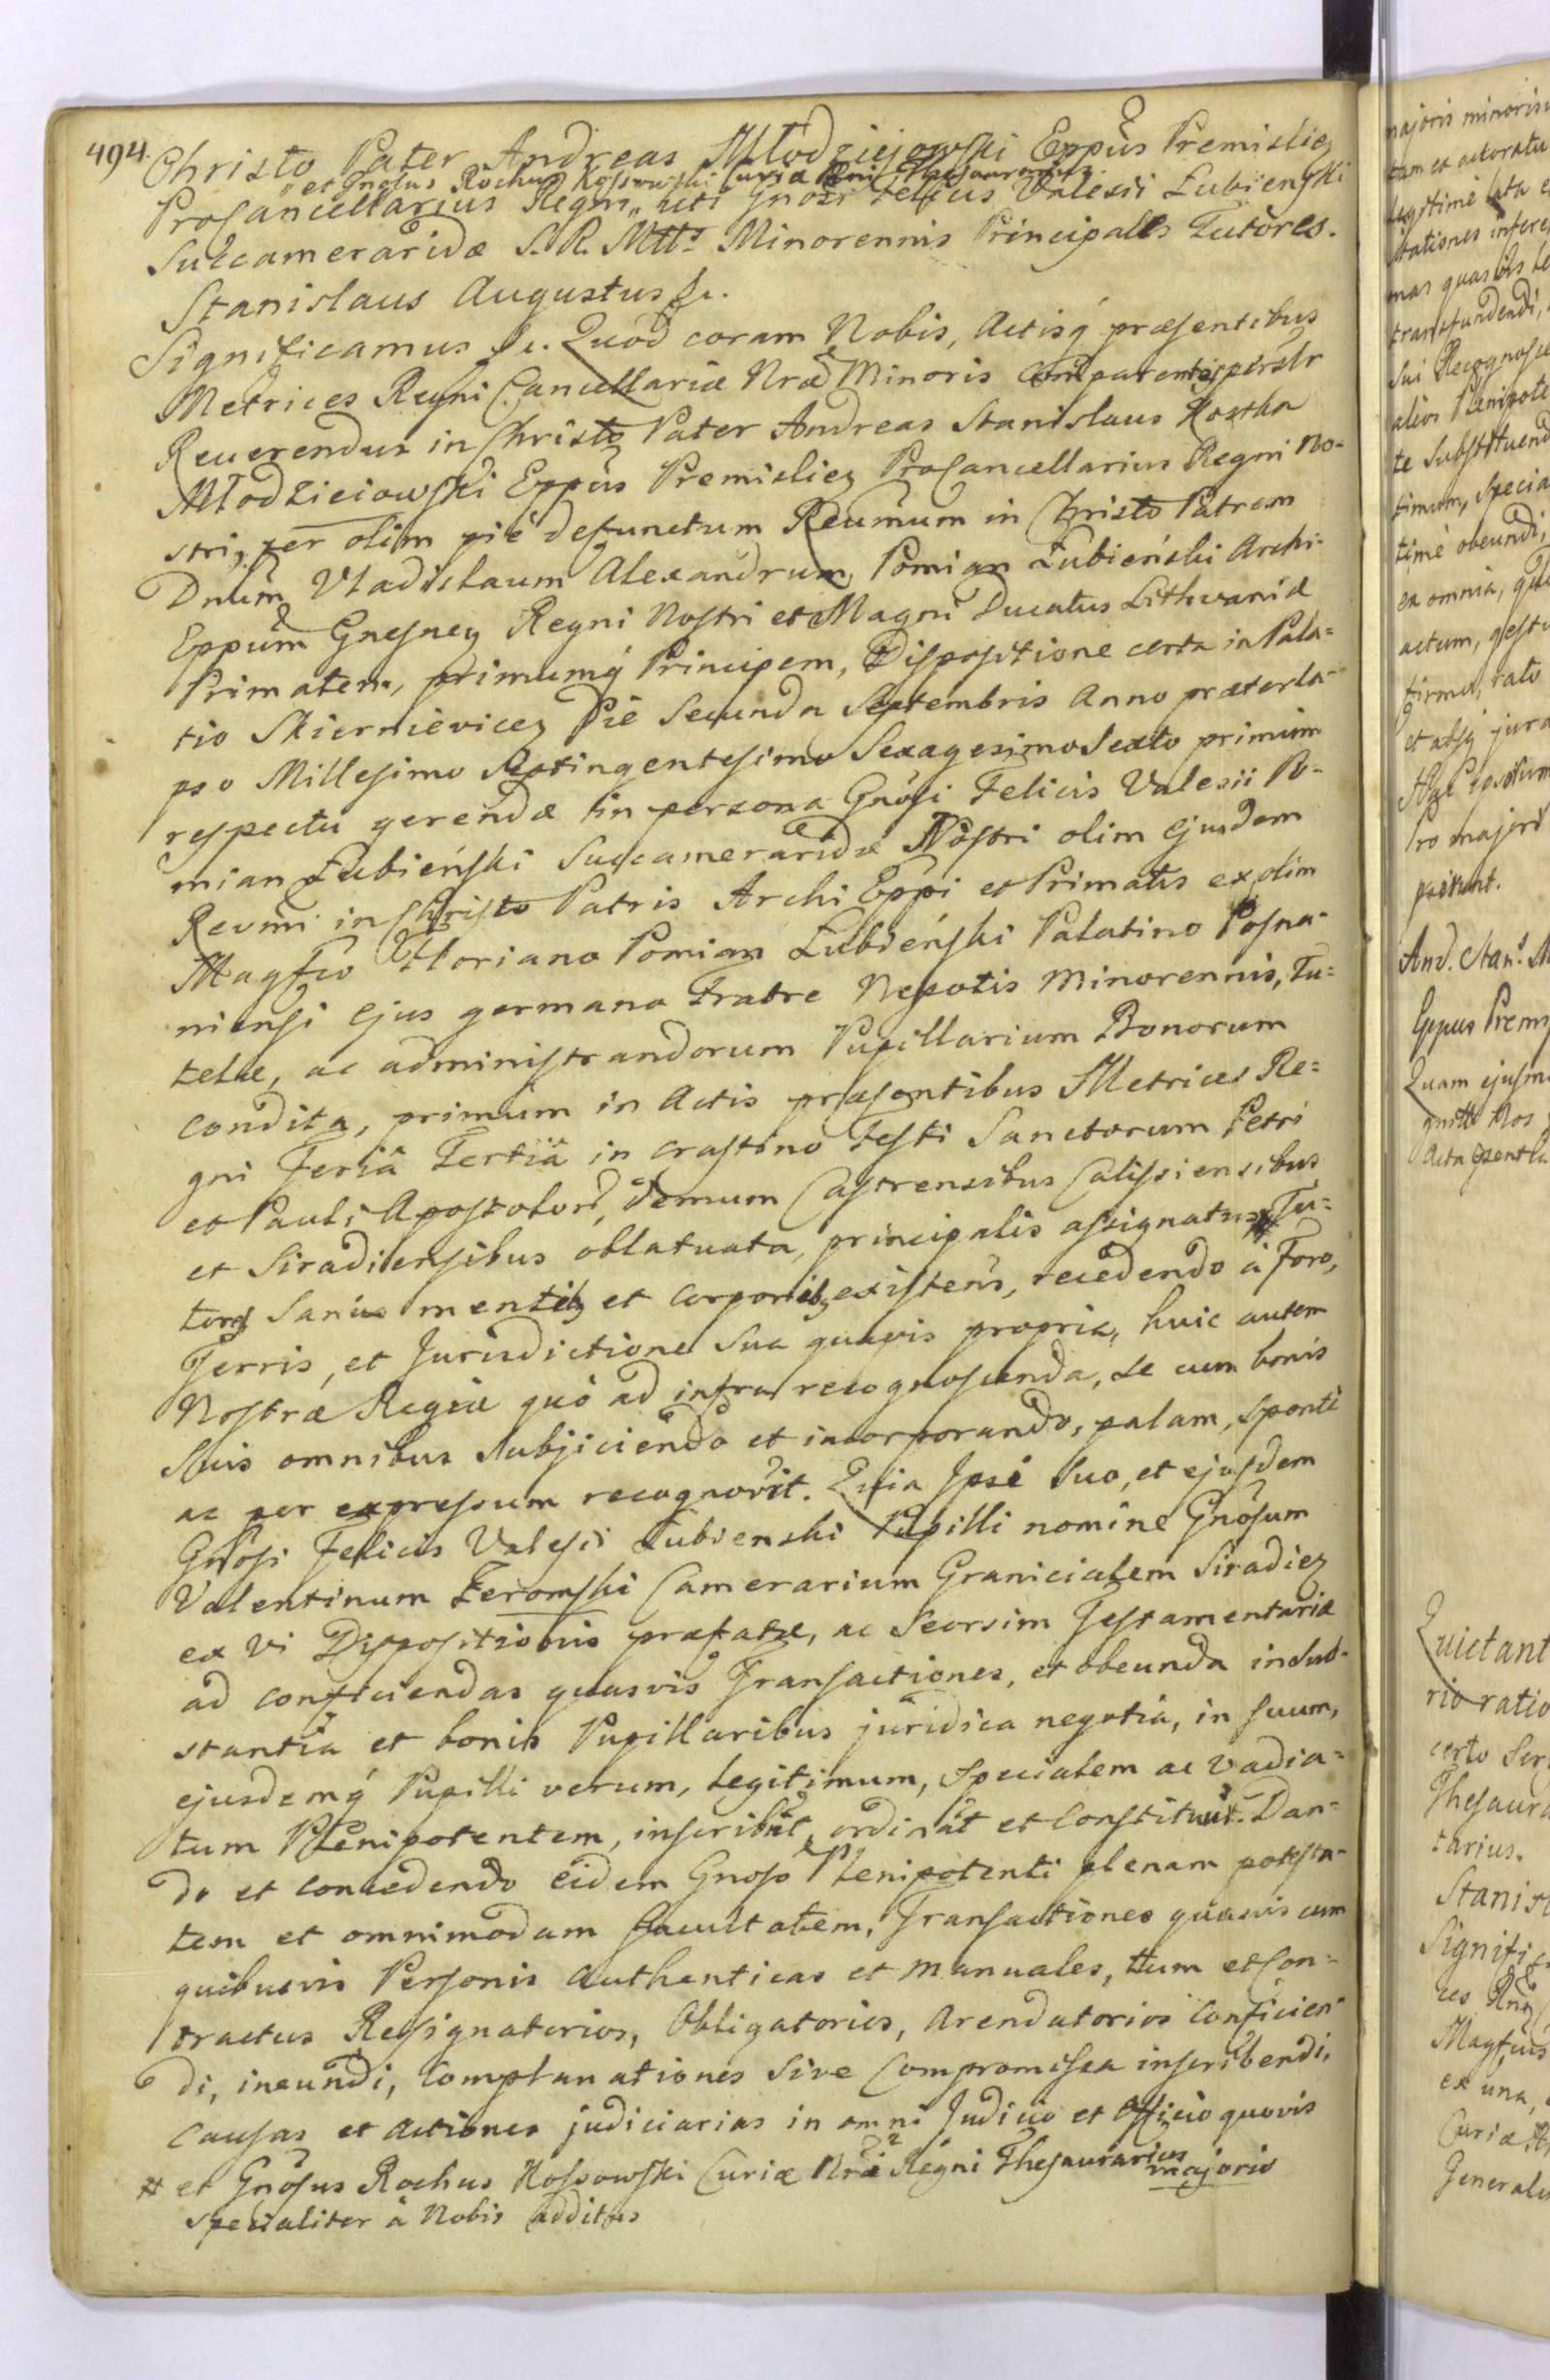 494.
Christo Pater Andreas Młodziejowski Eppus Premisliez
„et Gnosus Rochus Kossowski Curiæ Regni Thesaurarius
Procancellarius Regni„ uti Gnosi Felicis Valesii Łubieński
Succameraridæ S. R. Mttis Minorennis Principales Tutores.
Stanislaus Augustus &c.
Significamus &c. Quod coram Nobis, Actisq́ præsentibus
Metrices Regni Cancellariæ Nræ Minoris comparens persłr
Reverendus in Christo Pater Andreas Stanislaus Kostka
Młodzieiowski Eppus Premisliez Procancellarius Regni No-
stri, per olim piè defunctum Reumum in Christo Patrem
Dnum Vladislaum Alexandrum Pomian Łubieński Archi-
Eppum Gnesnez Regni Nostri et Magni Ducatus Lithvaniæ
Primatem, primumq́ Principem, Dispositione certa in Pala=
tio Skiernievicez Die Secunda Septembris Anno præterla-
pso Millesimo Septingentesimo Sexagesimo Sexto primùm
respectu gerendæ in persona Gnosi Felicis Valesii Po-
mian Łubieński Succameraridæ Nostri olim ejusdem
Revmi in Christo Patris Archi Eppi et Primatis ex olim
Magfco Floriano Pomian Łubieński Palatino Posna-
niensi ejus germano Fratre Nepotis Minorennis, Tu=
telæ, ac administrandorum Pupillarium Bonorum
condita, primum in Actis præsentibus Metrices Re=
gni Feriâ Tertiâ in crastino Festi Sanctorum Petri
et Pauli Apostolorũ, demum Castrensibus Calissiensibus
et Siradiensibus oblatuata, principalis assignatus # Tu=
tor Sanus mente et corpore existens, recedendo à Foro,
Terris, et Jurisdictione Sua quavis propria, huic autem
Nostræ Regiæ quò ad infra recognoscenda, se cum bonis
Suis omnibus subjiciendo et incorporando, palam, sponte
ac per expressum recognovit. Quia Ipse Suo, et ejusdem
Gnosi Felicis Valesii Łubienski Pupilli nomine Gnosum
Valentinum Żeromski Camerarium Granicialem Siradiez
ex vi Dispositionis præfatæ, ac Seorsim Testamentariæ
ad conficiendas quasvis Transactiones, et obeunda in sub-
stantia et bonis Pupillaribus juridica negotia, in suum,
ejusdemq́ Pupilli verum, legitimum, Specialem ac vadia=
tum Plenipotentem, inscribit, ordinat et Constituit. Dan=
do et concedendo eidem Gnoso Plenipotenti plenam potesta-
tem et omnimodam facultatem, Transactiones quasvis cum
quibusvis Personis authenticas et manuales, tum et Con=
tractus Resignatorios, Obligatorios, Arendatorios conficien-
di, ineundi, Complanationes sive Compromissa inscribendi,
Causas et Actiones judiciarias in omni Judicio et Officio quovis
majoris
# et Gnosus Rochus Kossowski Curiæ Nræ Regni Thesaurarius
specialiter à Nobis additus
majoris minoris
tam ex actoratu
legitimè
tationes infere
mas quasvis
transfundendi,
Sui Recognosc
alios Plenipote
te Substituend
timum, Specia
timè obeundi,
ea omnia, quæ
actum, gestu
firmu, rato
et absq́ jura
Pro majori
And. Stan.
Eppus Prem
Quam ejusm
Quietant
rio ratio
certo
Thesaura
tarius.
Stanisl
Signific
Magfcus
ex una,
Curiæ
Generalis